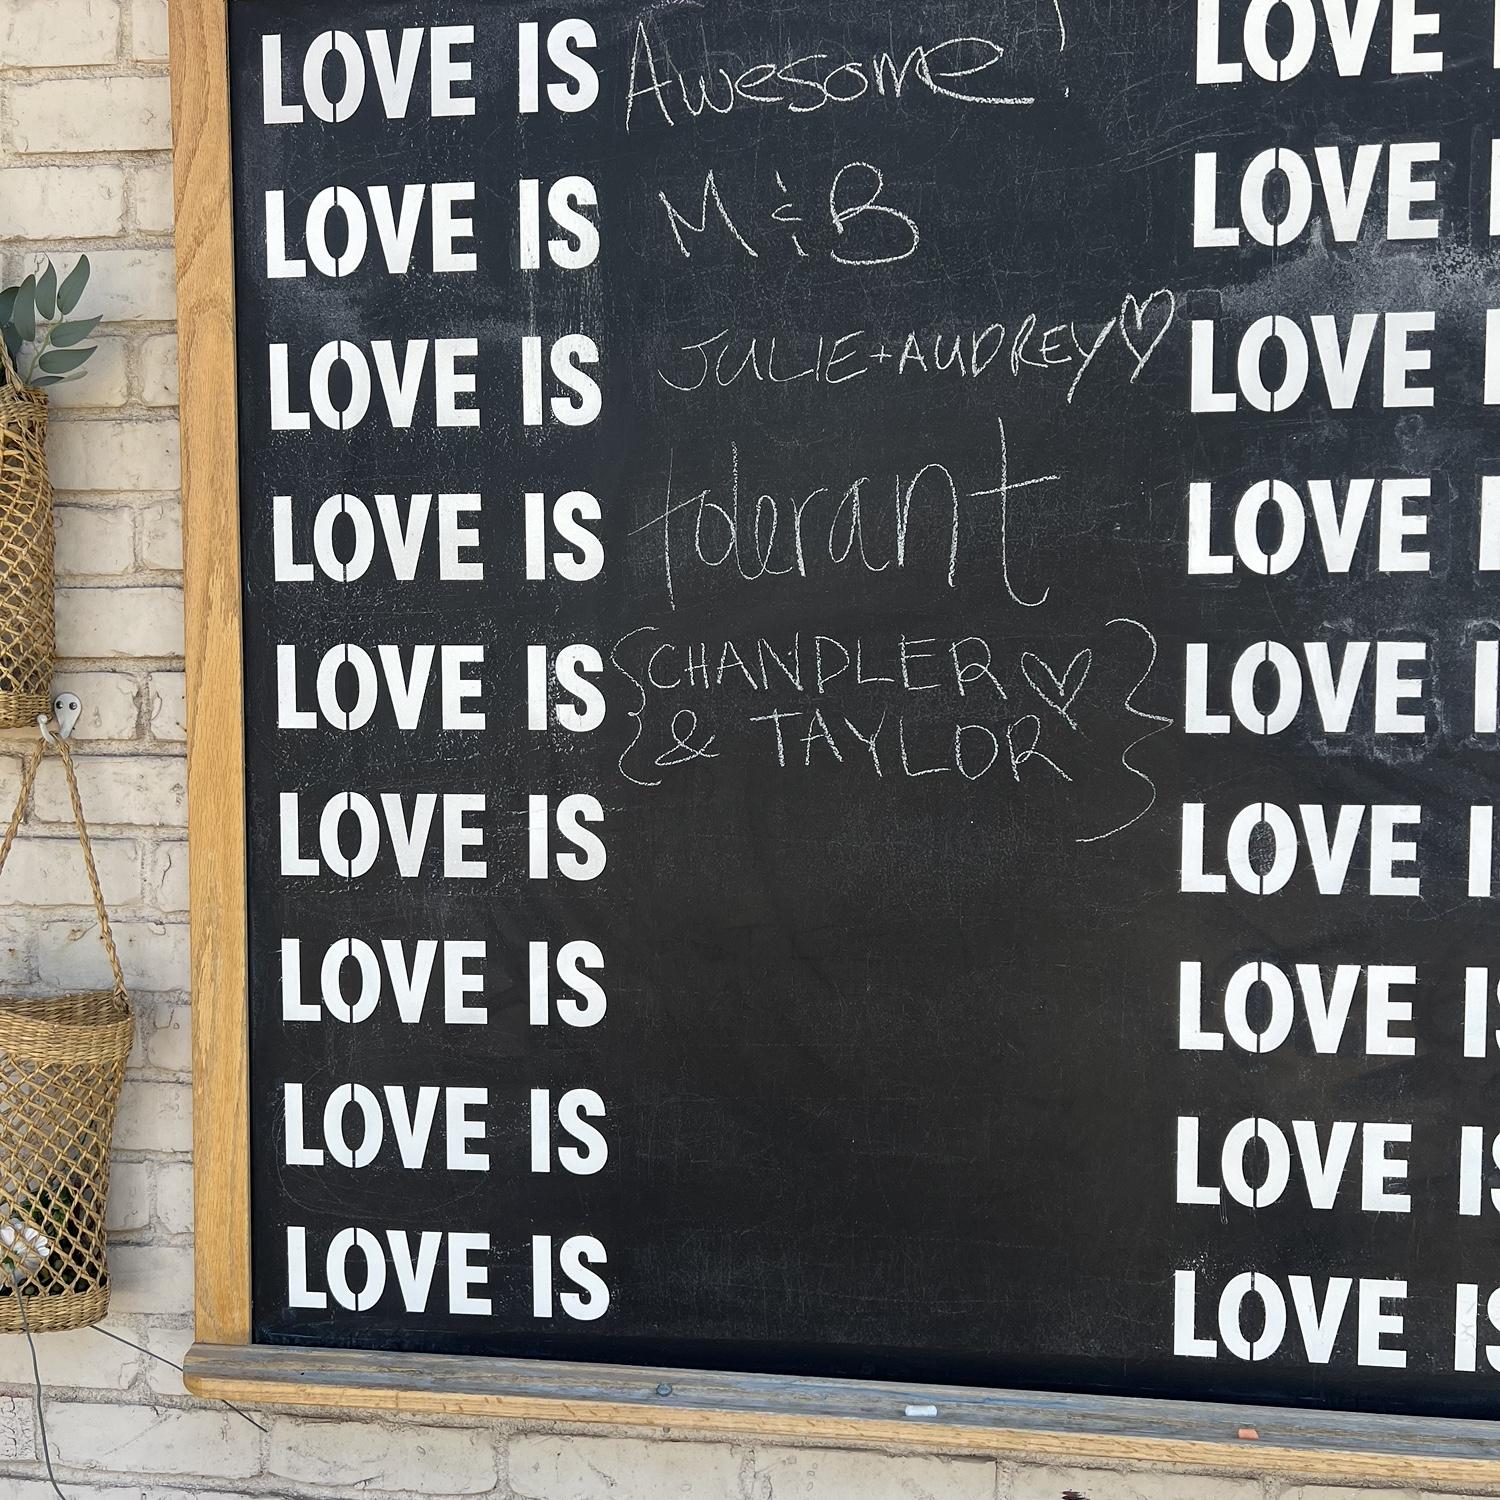 LOVE IS Awesome!
LOVE IS M & B
LOVE IS JULIE + AUDREY ♡
LOVE IS tolerant
LOVE IS {CHANDLER ♡
& TAYLOR}
LOVE IS
LOVE IS
LOVE IS
LOVE IS
LOVE I
LOVE I
LOVE I
LOVE I
LOVE I
LOVE I
LOVE IS
LOVE IS
LOVE IS